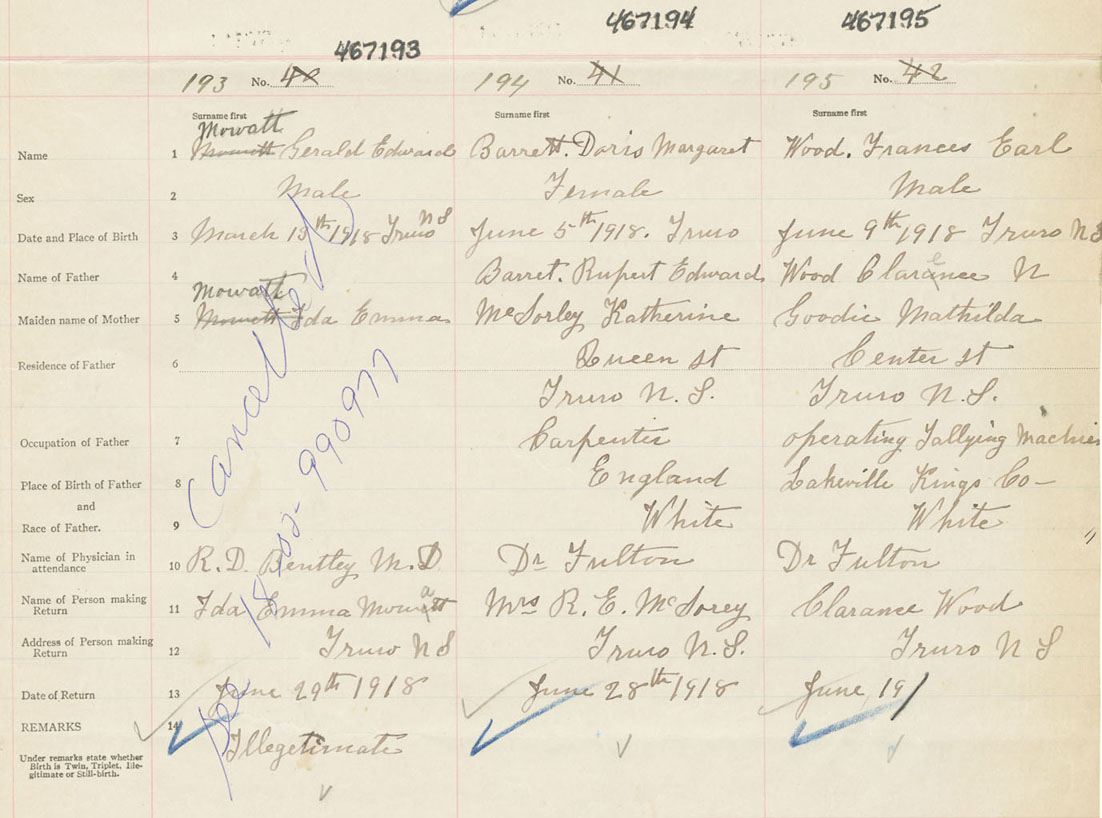 467193 467194 467195
193 No. 40 194 No. 41 195 No. 42
Surname first Surname first Surname first
Mowatt
Name 1 Mowett Gerald Edward Barrett. Doris Margaret Wood. Frances Earl
Sex 2 Male Female Male
Date and Place of Birth 3 March 13th 1918 Truro NS June 5th 1918. Truro June 9th 1918 Truro NS
Name of Father 4 Barret. Rupert Edward Wood Clarence N
Mowatt
Maiden name of Mother 5 Mowett Ida Emma McSorley Katherine Goodie Mathilda
Residence of Father 6 Queen st Center st
Truro N.S. Truro N.S.
Occupation of Father 7 Carpenter operating Tallying Machine
Place of Birth of Father 8 England Lakeville Kings Co-
and
Race of Father. 9 White White
Name of Physician in
attendance 10 R.D. Bentley M.D Dr Fulton Dr Fulton
Name of Person making
Return 11 Ida Emma Mowatt Mrs R.E. McSorey Clarance Wood
Address of Person making
Return 12 Truro NS Truro N.S. Truro N S
Date of Return 13 June 29th 1918 June 28th 1918 June 19
REMARKS 14
Illegetimate
Under remarks state whether
Birth is Twin, Triplet, Ille-
gitimate or Still-birth.
Cancelled
see 18-02-990977